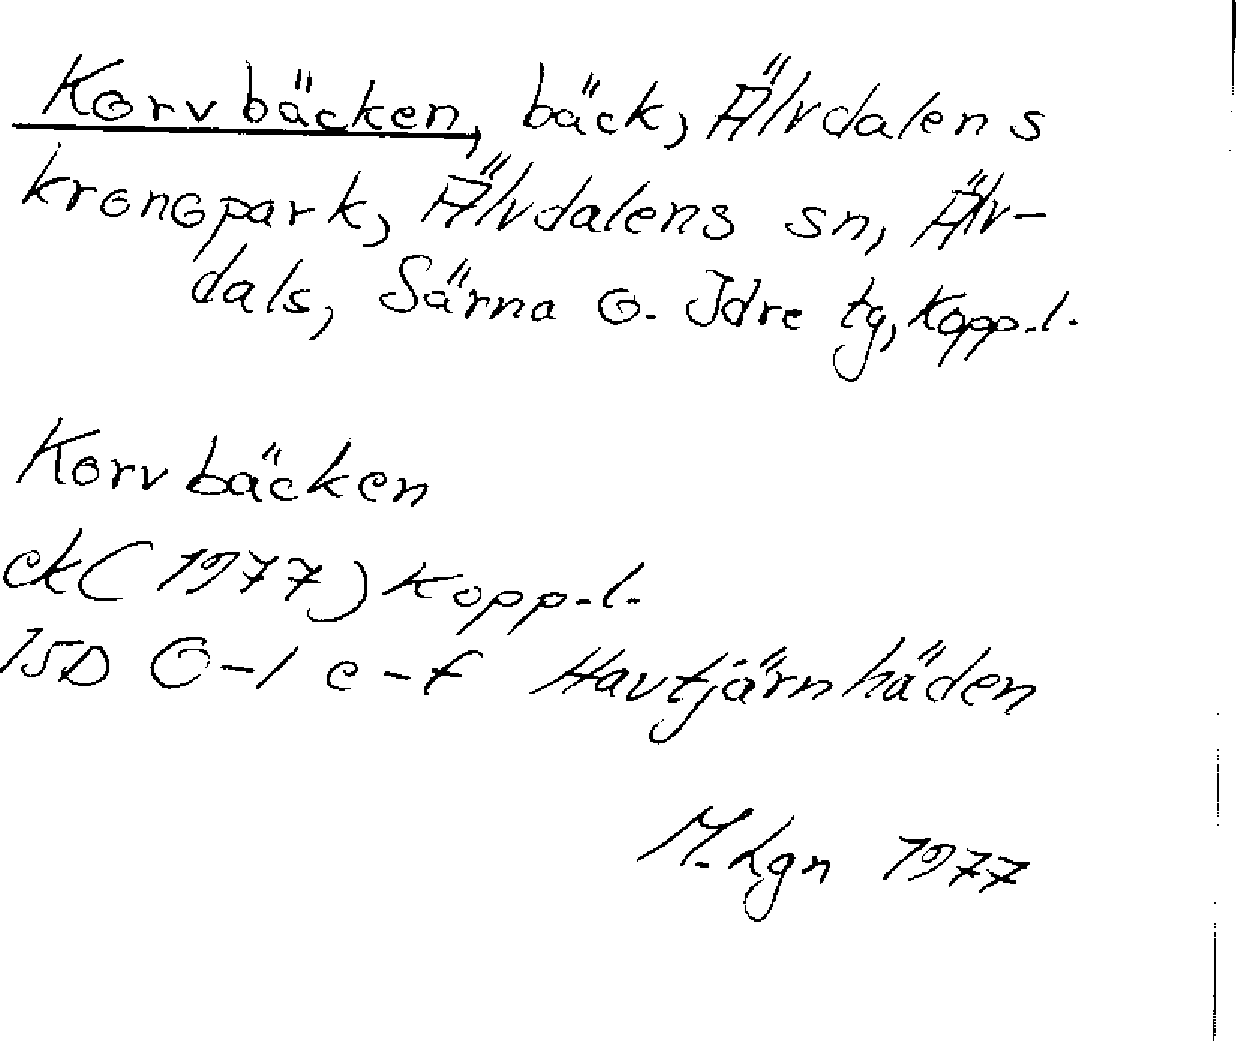 Korvbäcken, bäck, Älvdalens
kronopark, Älvdalens sn, Älv-
dals, Särna o. Idre tg, Kopp.l.
Korvbäcken
ek (1977) Kopp.l.
15D 0-1 e-f Havtjärnhäden
M. Lgn 1977